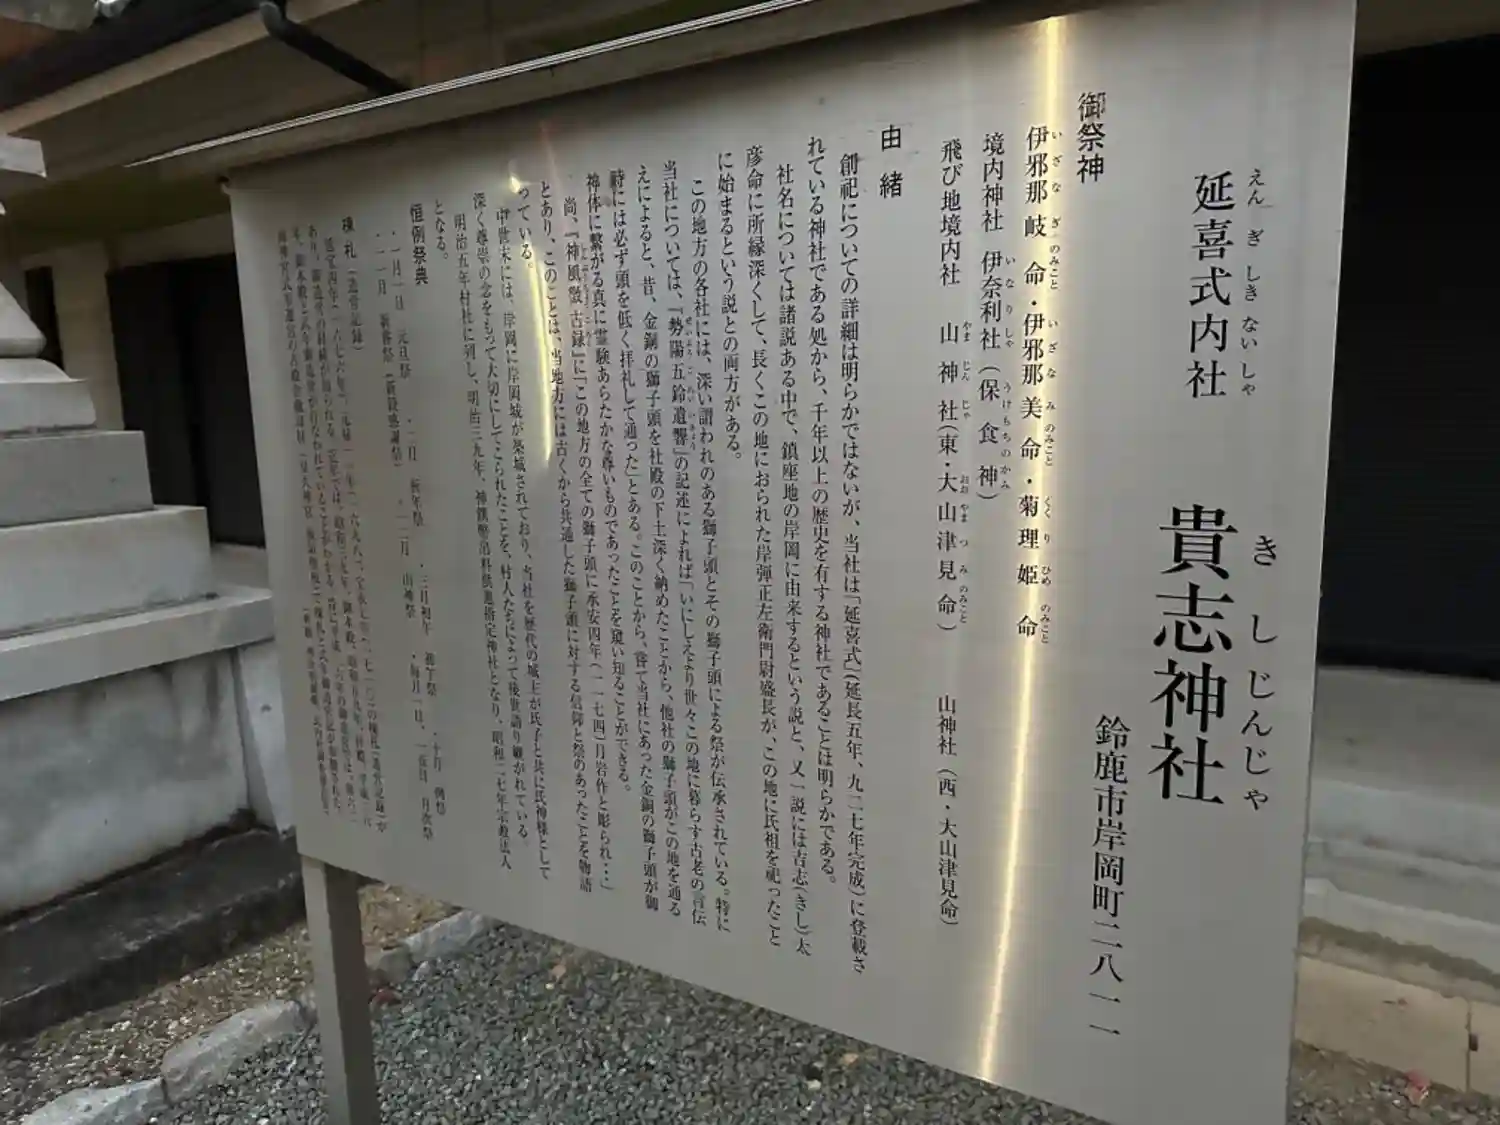 延喜式内社
えんぎしきないしゃ
貴志神社
きしじんじゃ
鈴鹿市岸岡町二八一一
御祭神
伊邪那岐命・伊邪那美命・菊理姫命
いざなぎのみこと いざなみのみこと くくりひめのみこと
境内神社 伊奈利社(保食神)
いなりしゃ うけもちのかみ
飛び地境内社 山神社(東・大山津見命) 山神社(西・大山津見命)
やまじんじゃ おおやまつみのみこと
由緒
創祀についての詳細は明らかではないが、当社は「延喜式」(延長五年、九二七年完成)に登載さ
れている神社である処から、千年以上の歴史を有する神社であることは明らかである。
社名については諸説ある中で、鎮座地の岸岡に由来するという説と、又一説には吉志(きし)太
彦命に所縁深くして、長くこの地におられた岸弾正左衛門尉盛長が、この地に氏祖を祀ったこと
に始まるという説との両方がある。
この地方の各社には、深い謂われのある獅子頭とその獅子頭による祭が伝承されている。特に
当社については、『勢陽五鈴遺響』の記述によれば「いにしえより世々この地に暮らす古老の言伝
せいようごれいいきょう
えによると、昔、金銅の獅子頭を社殿の下土深く納めたことから、他社の獅子頭がこの地を通る
時には必ず頭を低く拝礼して通った」とある。このことから、嘗て当社にあった金銅の獅子頭が御
神体に繋がる真に霊験あらたかな尊いものであったことを窺い知ることができる。
尚、『神風徴古録』に「この地方の全ての獅子頭に承安四年(一一七四)月岩作と彫られ・・・」
とあり、このことは、当地方には古くから共通した獅子頭に対する信仰と祭のあったことを物語
っている。
中世末には、岸岡に岸岡城が築城されており、当社を歴代の城主が氏子と共に氏神様として
深く尊崇の念をもって大切にしてこられたことを、村人たちによって後世語り継がれている。
明治五年村社に列し、明治三九年、神饌幣帛料供進指定神社となり、昭和二七年宗教法人
となる。
恒例祭典
・一月一日 元旦祭 ・二月 祈年祭 ・三月初午 初午祭 ・十月 例祭
・十一月 新嘗祭(新穀感謝祭) ・十二月 山神祭 ・毎月一日、十五日 月次祭
棟札(造営記録)